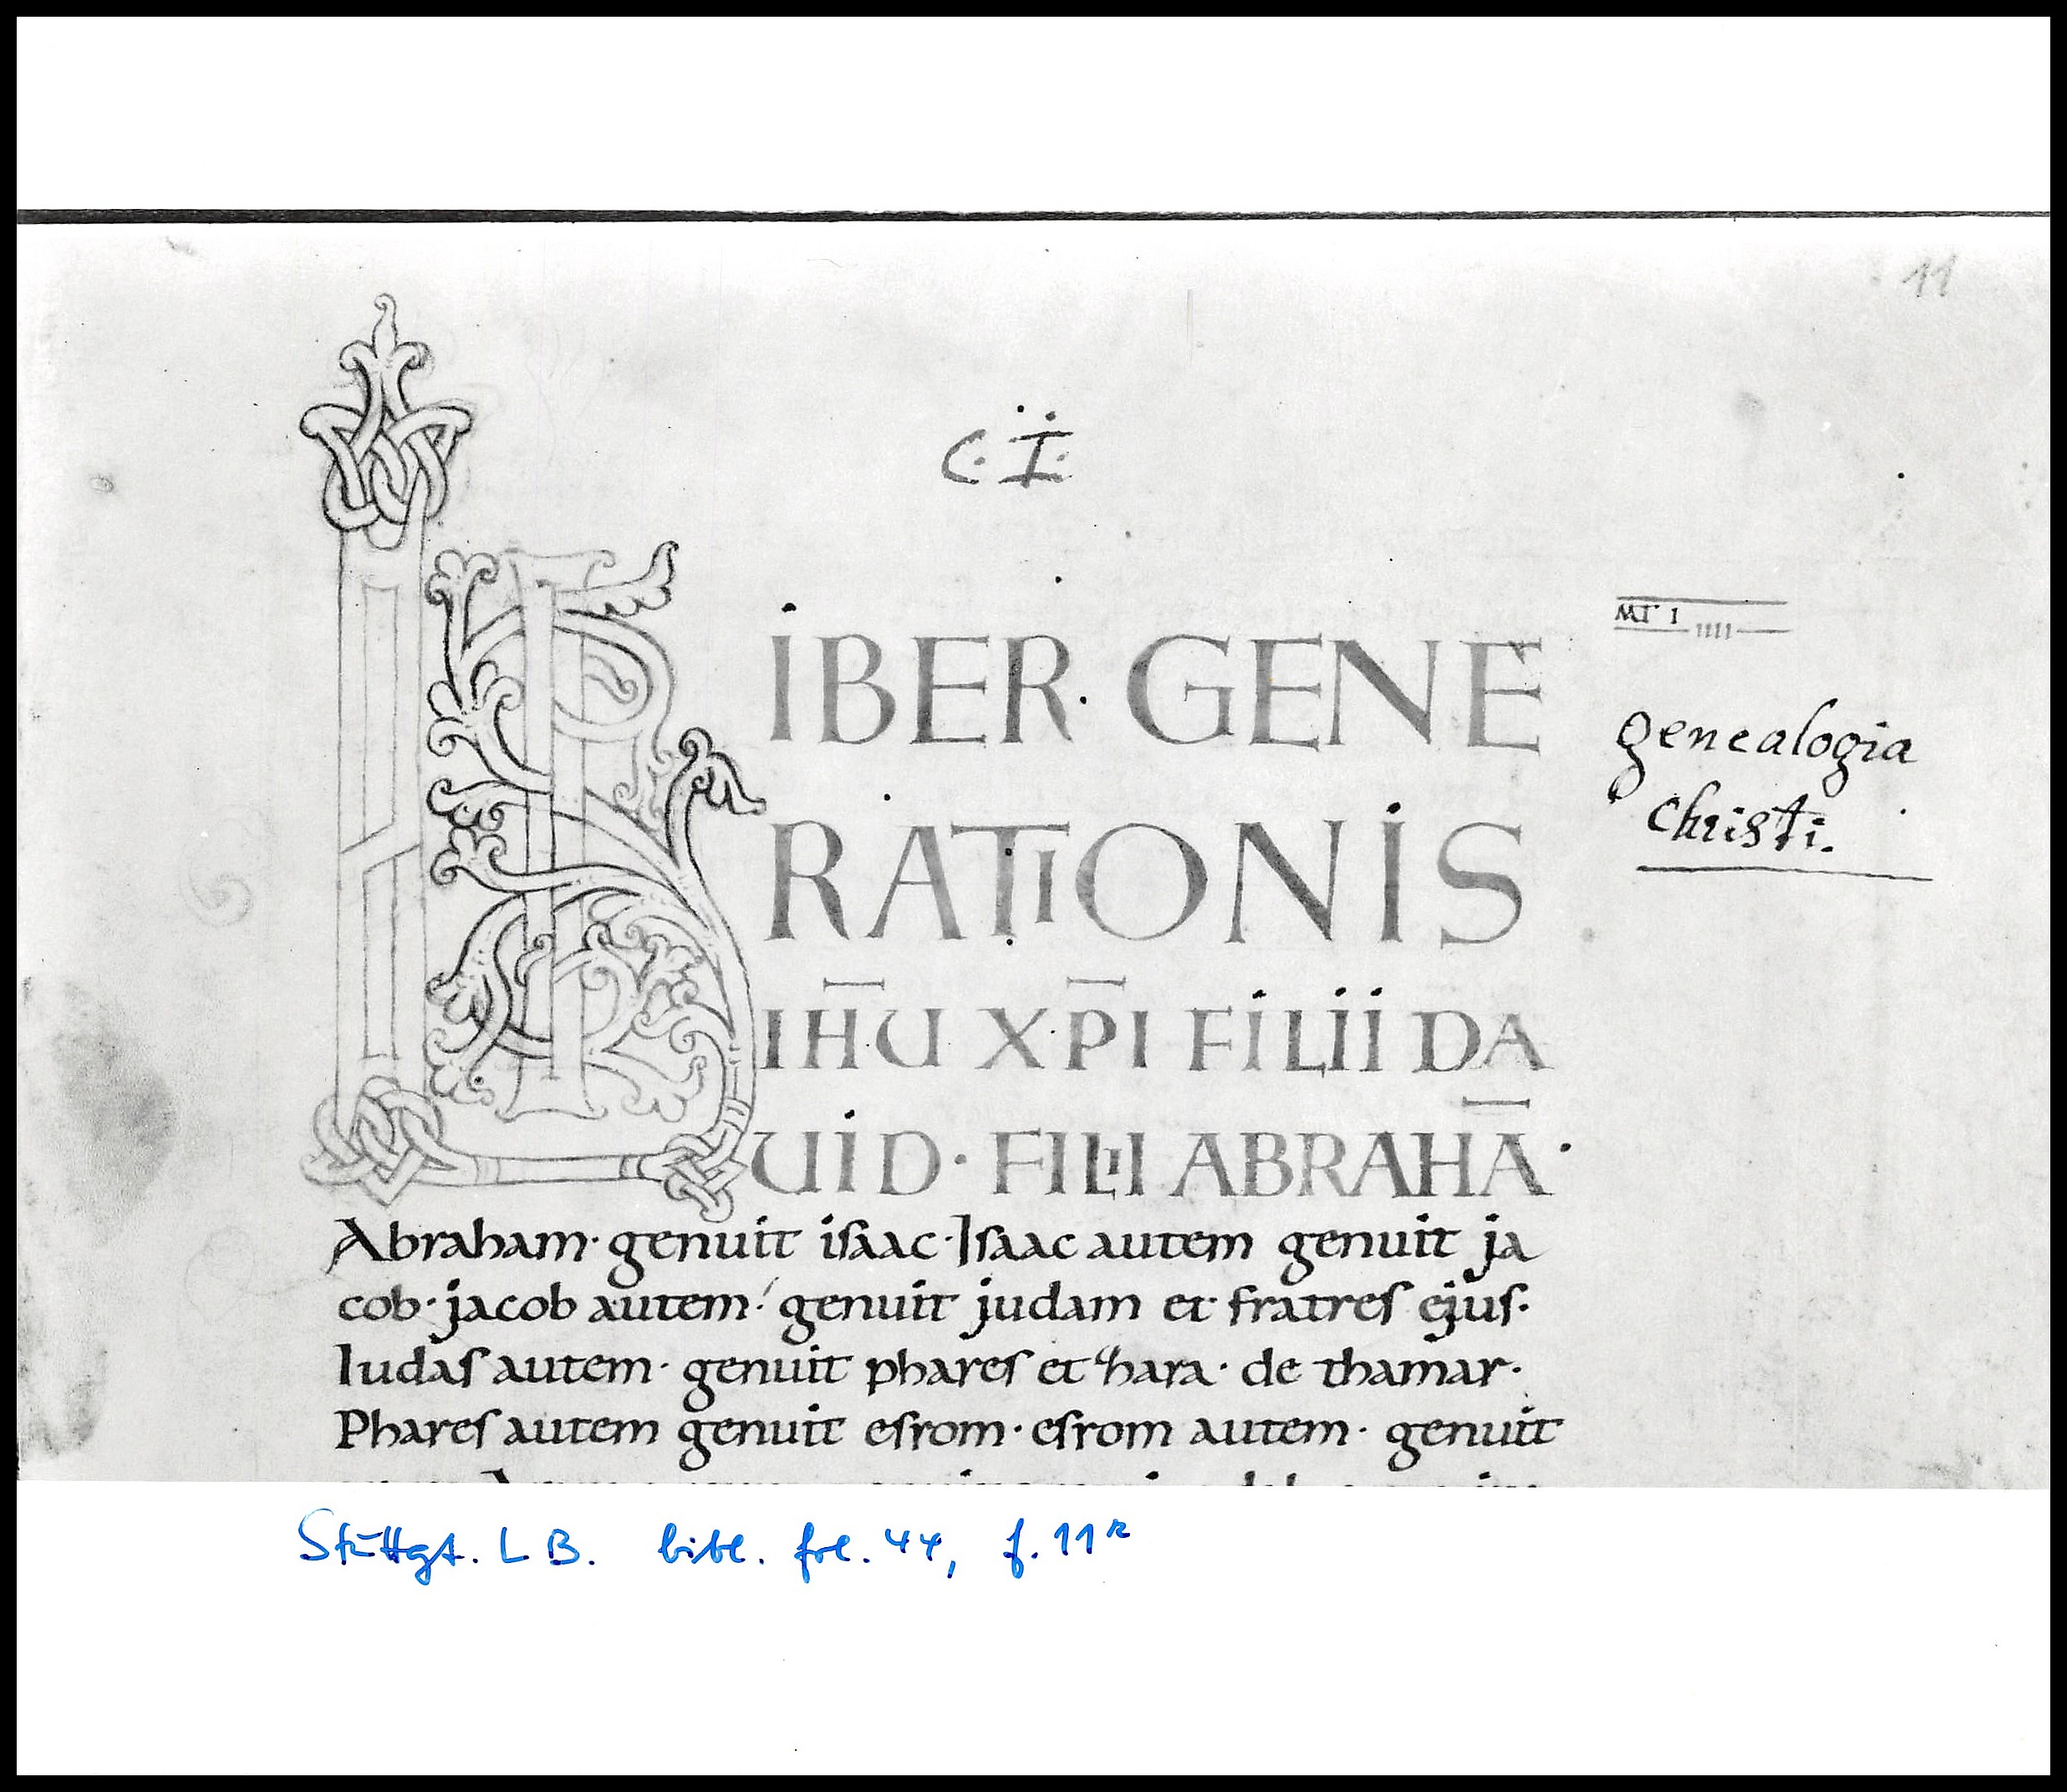 11
C. I.
LIBER· GENE
RATIONIS
IH̅U X̅P̅I FILII DA
UID· FILII ABRAHĀ·
MT I
IIII
genealogia
Christi.
Abraham· genuit iſaac· Iſaac autem genuit ja
cob· jacob autem· genuit judam et fratreſ ejuſ·
Iudaſ autem· genuit phareſ et zhara· de thamar·
Phareſ autem genuit eſrom· eſrom autem· genuit
Stuttgt. L B. bibl. fol. 44, f. 11r